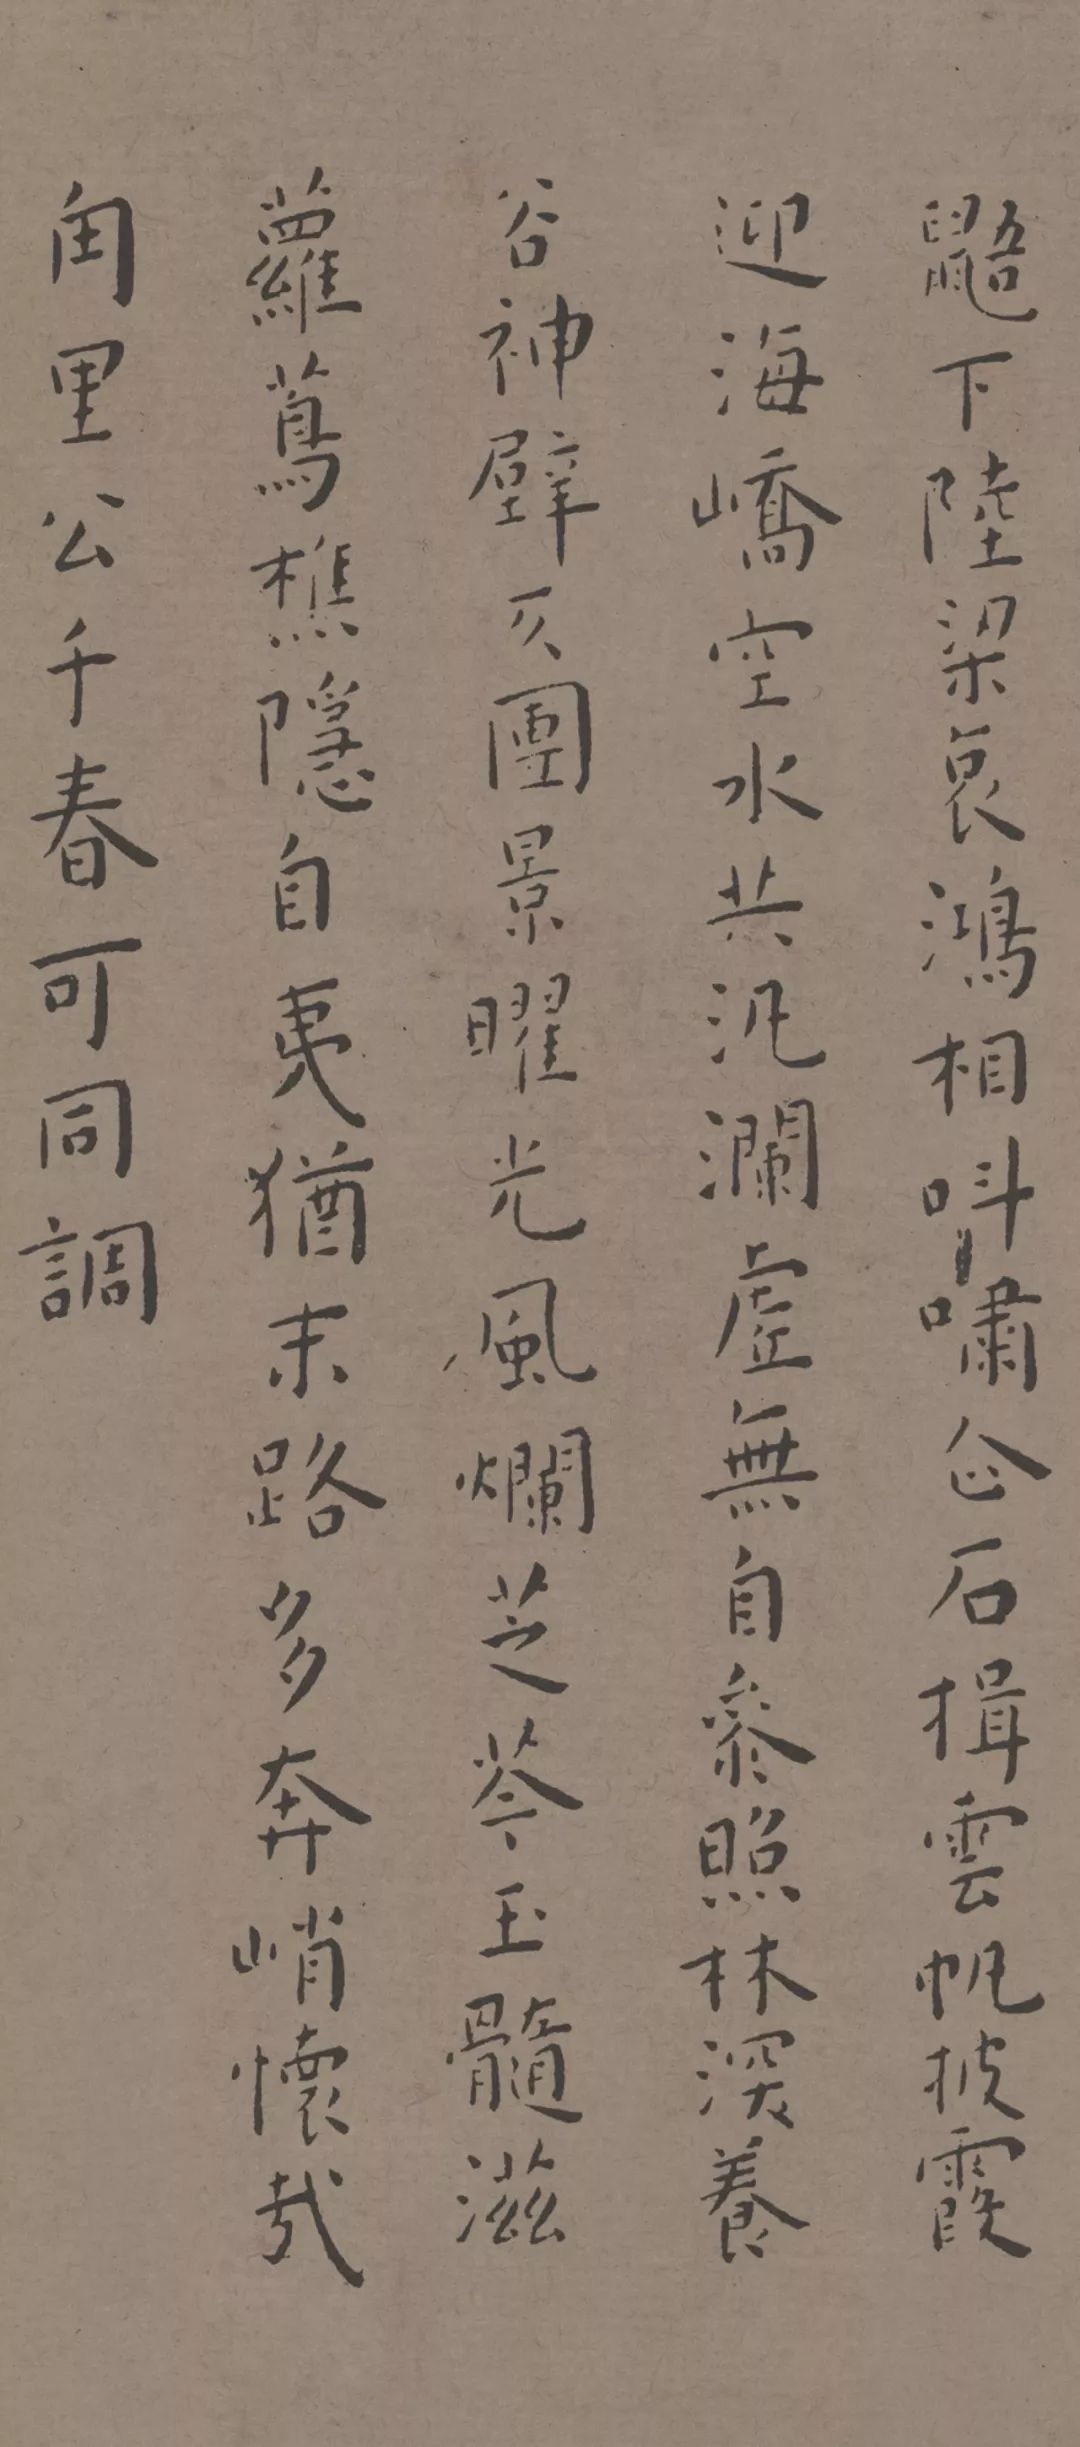 鼯下陸梁哀鴻相呌嘯企石揖雲帆披霞
迎海嶠空水共汎瀾虛無自參照林深養
谷神壁仄團景曜光風爛芝苓玉髓滋
蘿蔦樵隱自夷猶末路多奔峭懷哉
甪里公千春可同調